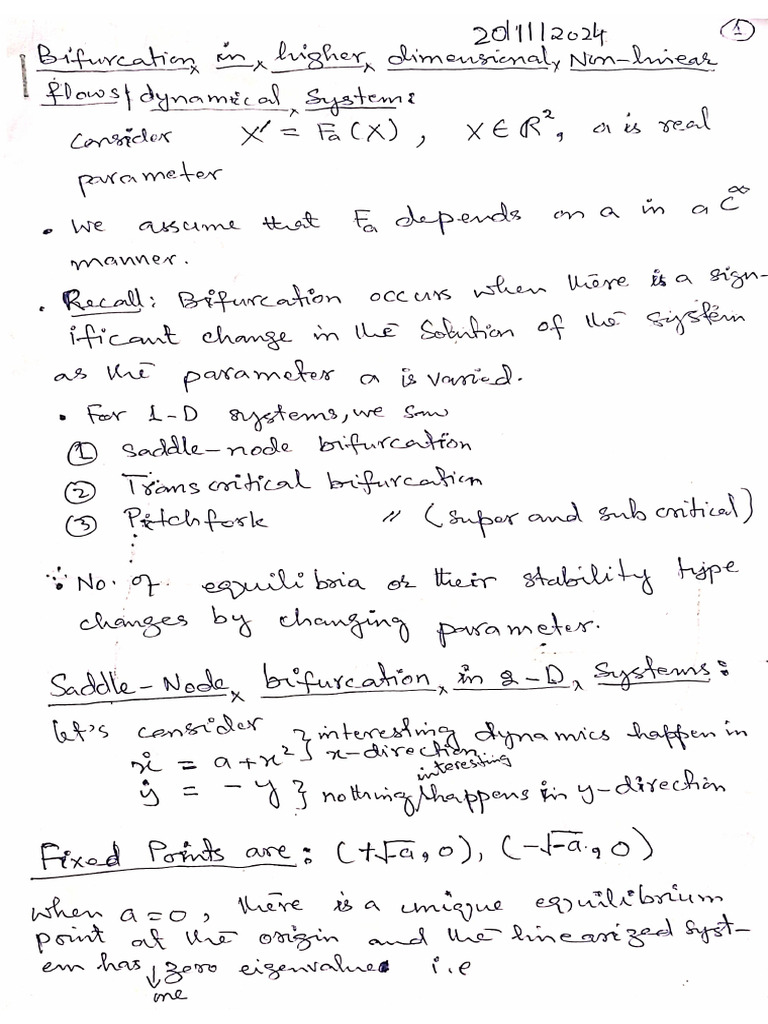 20/11/2024 ①
Bifurcation in higher dimensional Non-linear
flows/dynamical System:
Consider X' = Fa(X), X ∈ ℝ², a is real
parameter
• We assume that Fa depends on a in a C^∞
manner.
• Recall: Bifurcation occurs when there is a sign-
ificant change in the Solution of the system
as the parameter a is varied.
• For 1-D systems, we saw
① Saddle-node bifurcation
② Transcritical bifurcation
③ Pitchfork " (super and sub critical)
∵ No. of equilibria or their stability type
changes by changing parameter.
Saddle-Node bifurcation in 2-D Systems:
Let's consider } interesting dynamics happen in
ẋ = a+x² } x-direction
ẏ = -y } nothing interesting happens in y-direction
Fixed Points are: (+√-a, 0), (-√-a, 0)
when a=0, there is a unique equilibrium
point at the origin and the linearized syst-
em has one zero eigenvalue i.e